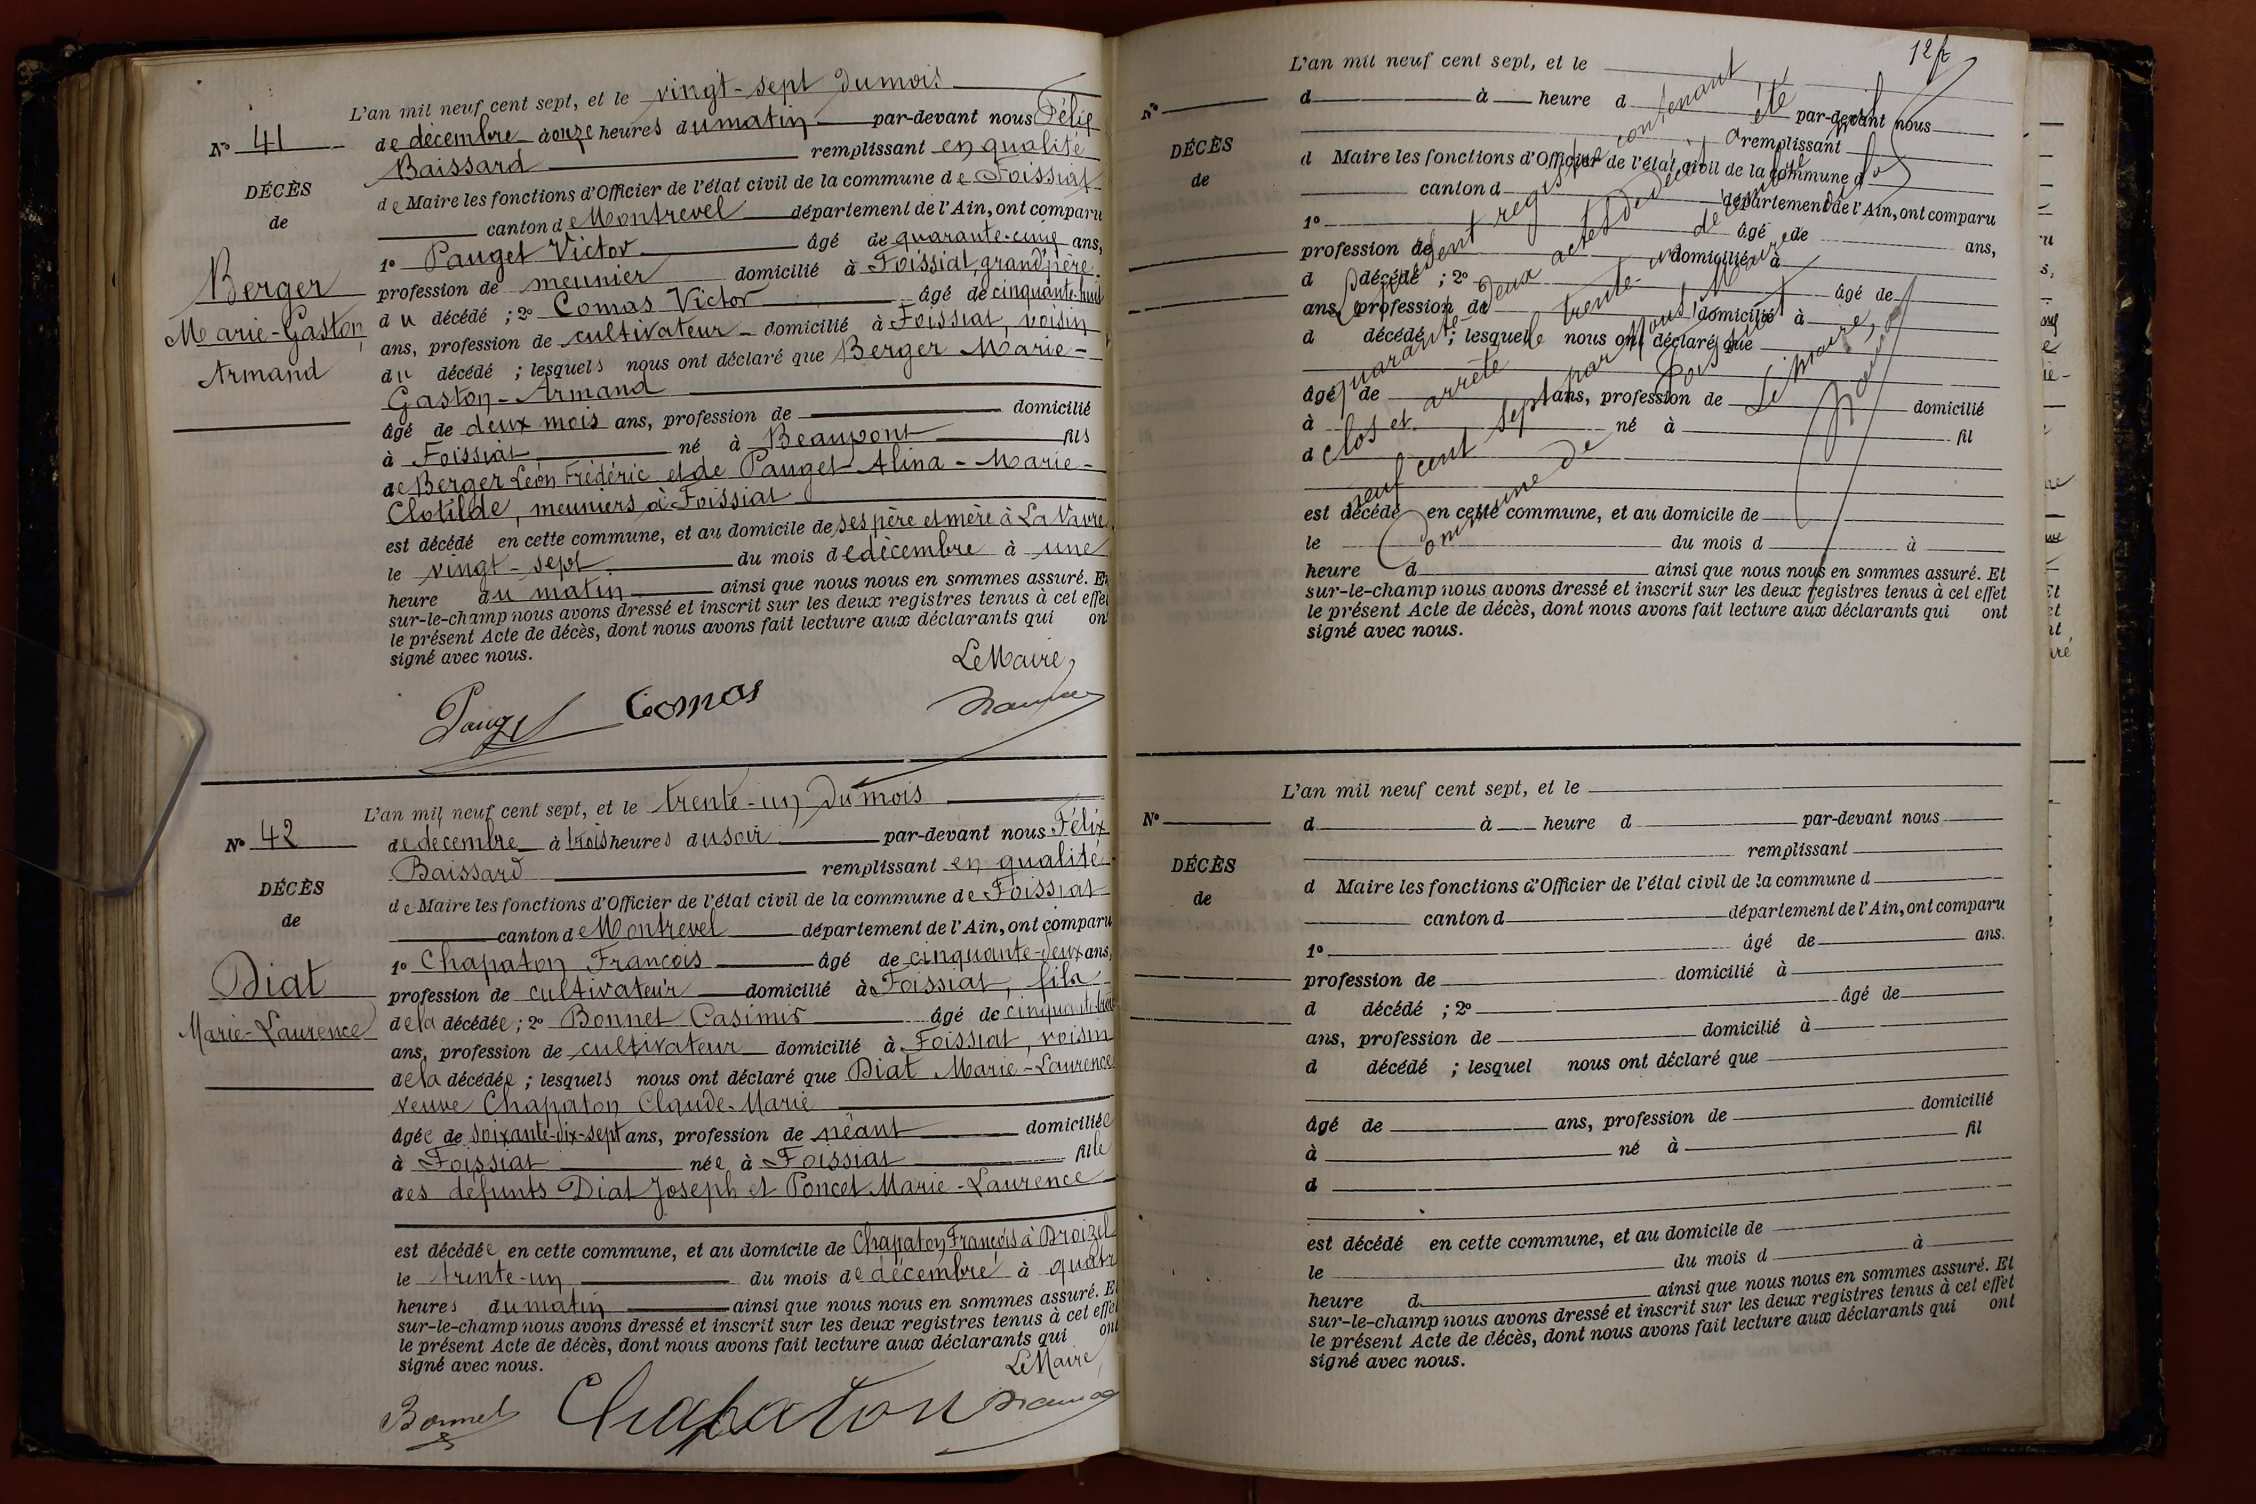 L'an mil neuf cent sept, et le vingt-sept du mois
N° 41
de décembre à onze heures du matin par-devant nous Félix
Baissard remplissant en qualité
DÉCÈS
de Maire les fonctions d'Officier de l'état civil de la commune de Foissiat
de
canton de Montrevel département de l'Ain, ont comparu
1° Pauget Victor âgé de quarante-cinq ans,
Berger
profession de meunier domicilié à Foissiat, grand'père
Marie-Gaston
du décédé ; 2° Comas Victor âgé de cinquante-huit
ans, profession de cultivateur domicilié à Foissiat, voisin
Armand
du décédé ; lesquels nous ont déclaré que Berger Marie-
Gaston-Armand
âgé de deux mois ans, profession de domicilié
à Foissiat né à Beaupont fils
de Berger Léon Frédéric et de Pauget Alina-Marie-
Clotilde, meuniers à Foissiat
est décédé en cette commune, et au domicile de ses père et mère à La Vavre
le vingt-sept du mois de décembre à une
heure du matin ainsi que nous nous en sommes assuré. Et
sur-le-champ nous avons dressé et inscrit sur les deux registres tenus à cet effet
le présent Acte de décès, dont nous avons fait lecture aux déclarants qui ont
signé avec nous.
Le Maire,
Pauget Comas
L'an mil neuf cent sept, et le trente-un du mois
N° 42
de decembre à trois heures du soir par-devant nous Félix
Baissard remplissant en qualité
DÉCÈS
de Maire les fonctions d'Officier de l'état civil de la commune de Foissiat
de
canton de Montrevel département de l'Ain, ont comparu
1° Chapaton François âgé de cinquante-deux ans,
Diat
profession de cultivateur domicilié à Foissiat, fils
Marie-Laurence
de la décédée ; 2° Bonnet Casimir âgé de cinquante-trois
ans, profession de cultivateur domicilié à Foissiat, voisin
de la décédée ; lesquels nous ont déclaré que Diat Marie-Laurence
veuve Chapaton Claude-Marie
âgée de soixante-dix-sept ans, profession de néant domiciliée
à Foissiat née à Foissiat fille
des défunts Diat Joseph et Poncet Marie-Laurence
est décédée en cette commune, et au domicile de Chapaton François à Broizel
le trente-un du mois de décembre à quatre
heures du matin ainsi que nous nous en sommes assuré. Et
sur-le-champ nous avons dressé et inscrit sur les deux registres tenus à cet effet
le présent Acte de décès, dont nous avons fait lecture aux déclarants qui ont
signé avec nous.
Le Maire,
Bonnet Chapaton
12
L'an mil neuf cent sept, et le
N°
d à heure d par-devant nous
remplissant
DÉCÈS
d Maire les fonctions d'Officier de l'état civil de la commune d
de
canton d département de l'Ain, ont comparu
1° âgé de ans,
profession de domicilié à
d décédé ; 2° âgé de
ans, profession de domicilié à
d décédé ; lesquel nous ont déclaré que
âgé de ans, profession de domicilié
à né à fil
d
est décédé en cette commune, et au domicile de
le du mois d à
heure d ainsi que nous nous en sommes assuré. Et
sur-le-champ nous avons dressé et inscrit sur les deux registres tenus à cet effet
le présent Acte de décès, dont nous avons fait lecture aux déclarants qui ont
signé avec nous.
Le présent registre contenant
quarante-deux actes de décès a été
clos et arrêté le trente-un décembre mil
neuf cent sept par Nous, Maire de la
Commune de Foissiat
Le Maire,
L'an mil neuf cent sept, et le
N°
d à heure d par-devant nous
remplissant
DÉCÈS
d Maire les fonctions d'Officier de l'état civil de la commune d
de
canton d département de l'Ain, ont comparu
1° âgé de ans.
profession de domicilié à
d décédé ; 2° âgé de
ans, profession de domicilié à
d décédé ; lesquel nous ont déclaré que
âgé de ans, profession de domicilié
à né à fil
d
est décédé en cette commune, et au domicile de
le du mois d à
heure d ainsi que nous nous en sommes assuré. Et
sur-le-champ nous avons dressé et inscrit sur les deux registres tenus à cet effet
le présent Acte de décès, dont nous avons fait lecture aux déclarants qui ont
signé avec nous.